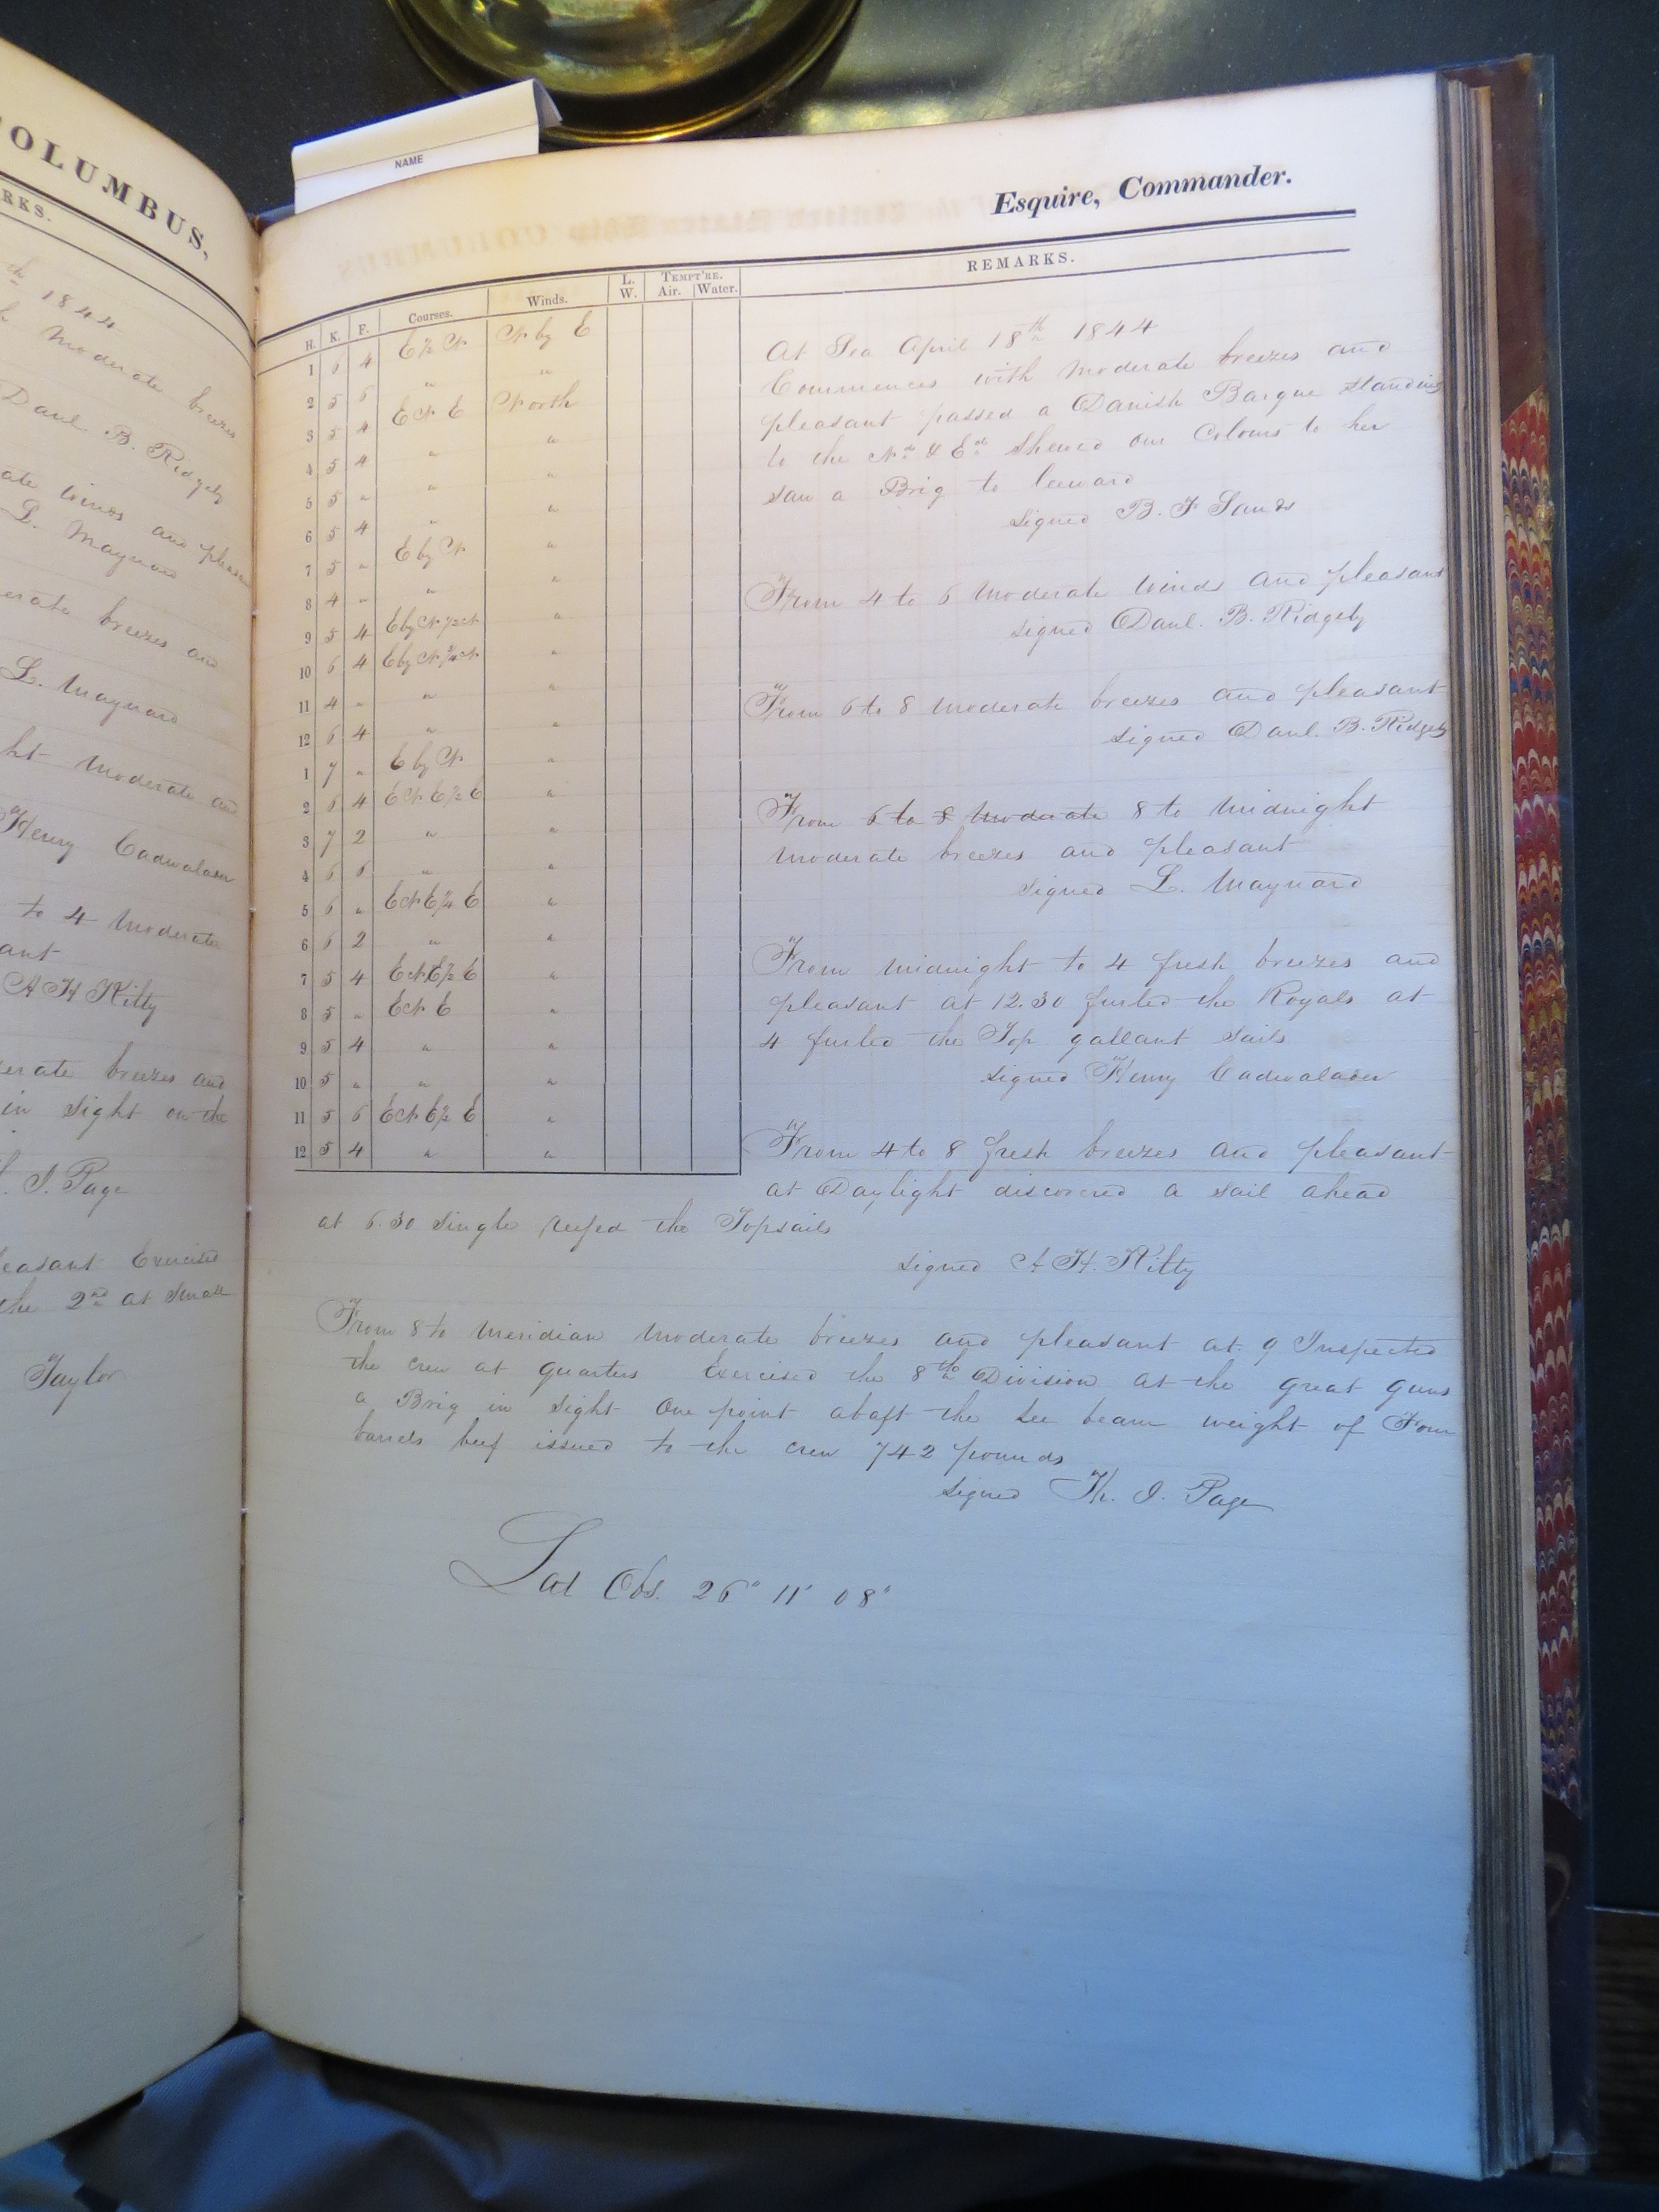 COLUMBUS,
RKS.
th 1844
Moderate breezes
Danl. B. Ridgely
ate winds and pleasan
L. Maynard
erate breezes and
L. Maynard
ht Moderate and
Henry Cadwalader
to 4 Moderate
ant
A H Kilty
erate breezes and
in sight on the
. J. Page
easant Exercised
the 2nd at Small
Taylor
NAME
Esquire, Commander.
H. K. F. Courses. Winds. L. W. TEMPT'RE. Air. Water. REMARKS.
1 6 4 E ½ N N by E
2 5 6 " "
3 5 4 E N E North
4 5 4 " "
5 5 " " "
6 5 4 " "
7 5 " E by N "
8 4 " " "
9 5 4 E by N ½ N "
10 6 4 E by N ¾ N "
11 4 " " "
12 6 4 " "
1 7 " E by N "
2 6 4 E N E ½ E "
3 7 2 " "
4 6 6 " "
5 6 " E N E ¾ E "
6 6 2 " "
7 5 4 E N E ½ E "
8 5 " E N E "
9 5 4 " "
10 5 " " "
11 5 6 E N E ½ E "
12 5 4 " "
At Sea April 18th 1844
Commences with moderate breezes and
pleasant passed a Danish Barque standing
to the Nd & Ed Shewed our Colours to her
saw a Brig to leeward
signed B. F Sands
From 4 to 6 Moderate winds and pleasant
signed Danl. B. Ridgely
From 6 to 8 Moderate breezes and pleasant
signed Danl. B. Ridgely
From 6 to 8 Moderate 8 to Midnight
Moderate breezes and pleasant
signed L. Maynard
From midnight to 4 fresh breezes and
pleasant at 12.30 furled the Royals at
4 furled the Top gallant sails
signed Henry Cadwalader
From 4 to 8 fresh breezes and pleasant
at Daylight discovered a sail ahead
at 6.30 single reefed the Topsails
signed A H. Kilty
From 8 to Meridian Moderate breezes and pleasant at 9 Inspected
the crew at quarters Exercised the 8th Division at the great guns
a Brig in sight one point abaft the Lee beam weight of Four
barrels beef issued to the crew 742 pounds
signed Th. J. Page
Lat Obs. 26° 11' 08"